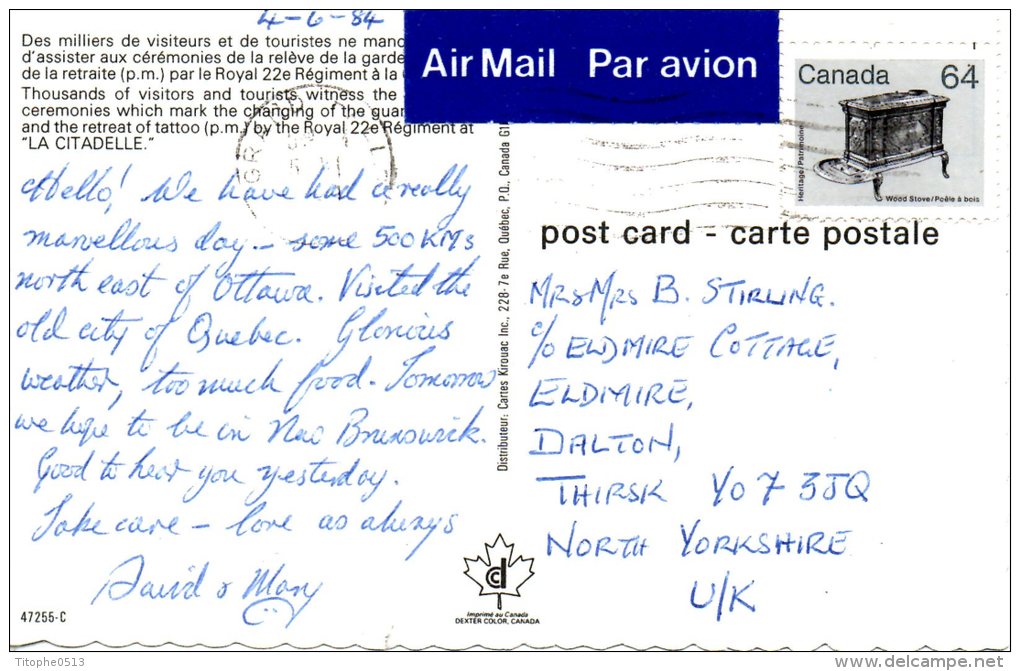 4-6-84
Des milliers de visiteurs et de touristes ne
d'assister aux cérémonies de la relève de la garde
de la retraite (p.m.) par le Royal 22e Régiment à la
Thousands of visitors and tourists witness the
ceremonies which mark the changing of the
and the retreat of tattoo (p.m.) by the Royal 22e Régiment at
"LA CITADELLE."
Air Mail Par avion
Canada 64
Heritage/Patrimoine
Wood Stove/Poêle à bois
post card - carte postale
Hello! We have had a really
marvellous day - some 500 KMs
north east of Ottawa. Visited the
old city of Quebec. Glorious
weather, too much food. Tomorrow
we hope to be in New Brunswick.
Good to hear you yesterday.
Take care - love as always
David & Mary
47255-C
Distributeur: Cartes Kirouac Inc., 228-7e Rue, Québec, P.Q., Canada G1
Imprimé au Canada
DEXTER COLOR, CANADA
MRS B. STIRLING.
c/o ELDMIRE COTTAGE,
ELDMIRE,
DALTON,
THIRSK YO7 3JQ
NORTH YORKSHIRE
U/K
Titophe0513
delcampe.net